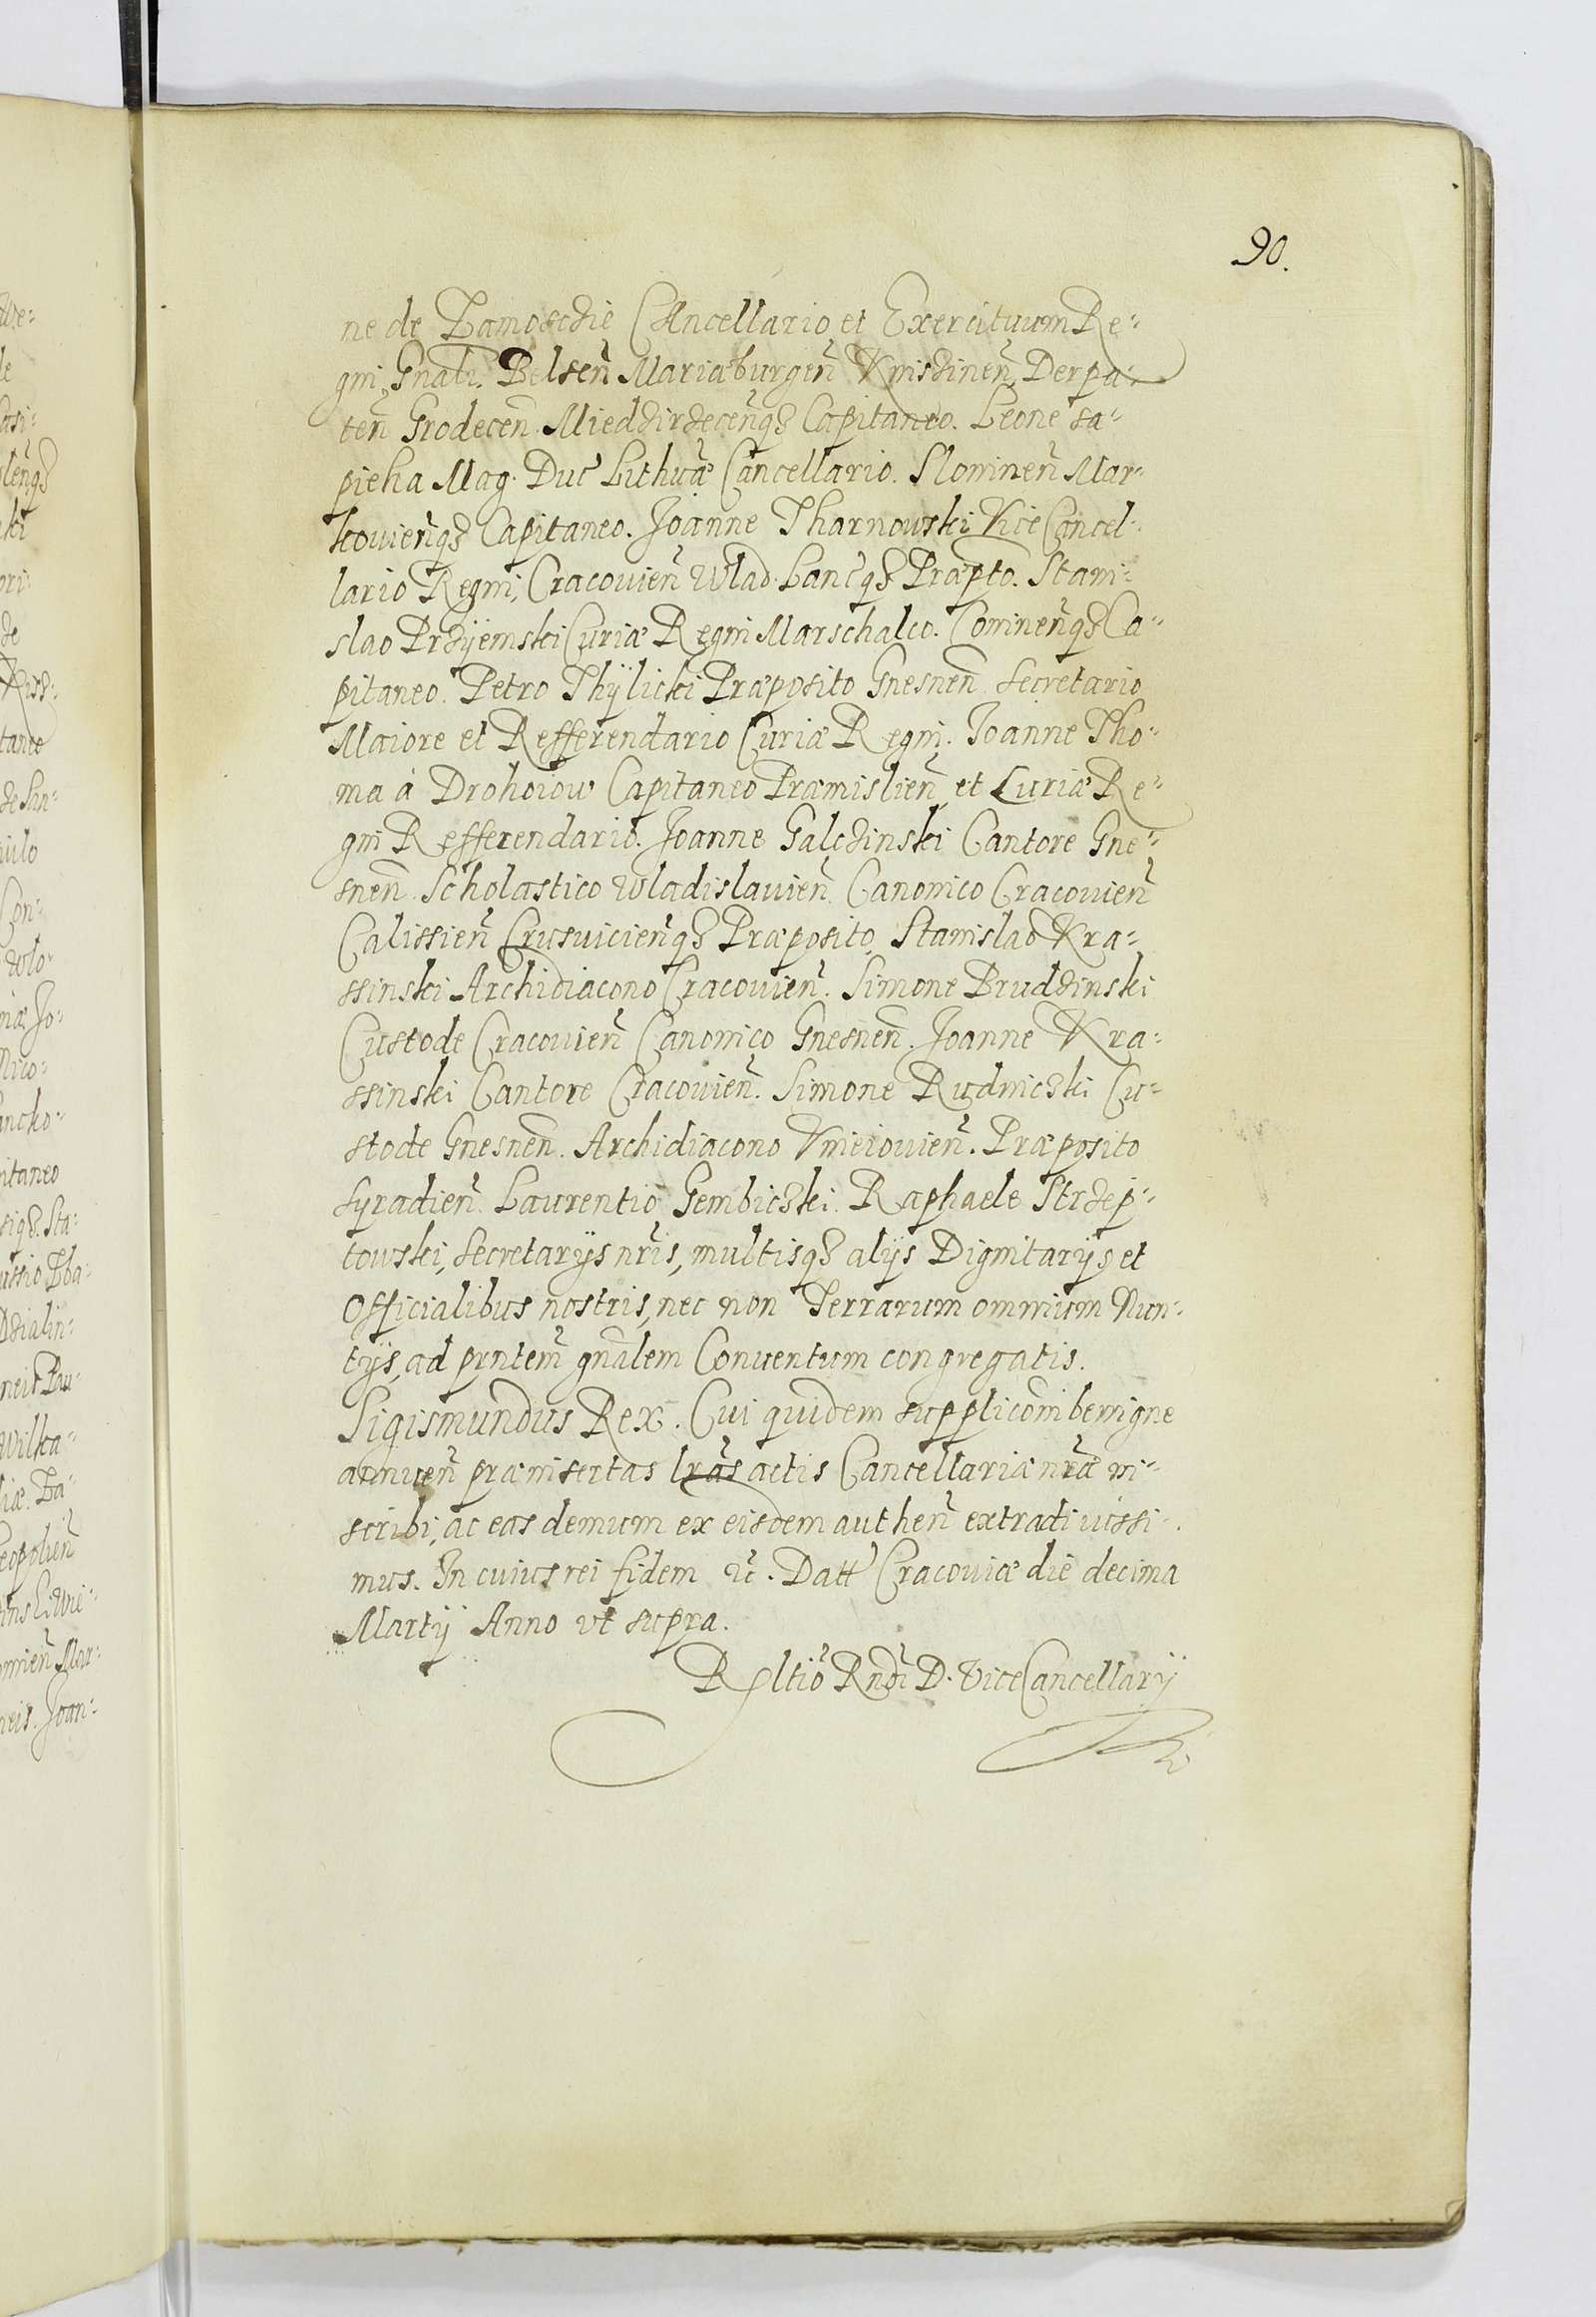 90.
ne de Zamosczie Cancellario et Exercituum Re-
gni Gnali. Belsen̄ Mariæburgen̄ Knisзinen̄ Derpa-
ten̄ Grodecen̄ Miedzirzecen̄qз Capitaneo. Leone Sa-
pieha Mag. Duc Lithuā Cancellario. Slonimen̄ Mar-
kovien̄qз Capitaneo. Joanne Tharnowski Vice Cancel-
lario Regni, Cracovien̄ Wlad. Lanc̄qз Præpto. Stani-
slao Przÿemski Curiæ Regni Marschalco. Coninen̄qз Ca-
pitaneo. Petro Thÿlicki Præposito Gnesnen̄ Secretario
Maiore et Refferendario Curiæ Regni. Joanne Tho-
ma à Drohoiow Capitaneo Præmislien̄ et Curiæ Re-
gni Refferendario. Joanne Galczinski Cantore Gne-
snen̄ Scholastico Wladislavien̄ Canonico Cracovien̄
Calissien̄ Crusvicien̄qз Præposito, Stanislao Kra-
ssinski Archidiacono Cracovien̄. Simone Brudzinski
Custode Cracovien̄ Canonico Gnesnen̄. Joanne Kra-
ssinski Cantore Cracovien̄. Simone Rudniczki Cu-
stode Gnesnen̄. Archidiacono Vnieiovien̄. Præposito
Syradien̄. Laurentio Gembiczki. Raphaele Strzep-
towski, Secretarÿs nr̄is, multisqз alÿs Dignitarÿs et
Officialibus nostris, nec non Terrarum omnium Nun-
tÿs, ad prntem̄ gnālem Conventum congregatis.
Sigismundus Rex. Cui quidem supplicōni benigne
annuen̄ præinsertas lrās actis Cancellariæ nrāe in-
scribi, ac eas demum ex eisdem authen̄ extradi iussi-
mus. In cuius rei fidem etc. Datt Cracoviæ die decima
Martÿ Anno vt supra.
Rltio Rndi D. Vice Cancellarÿ